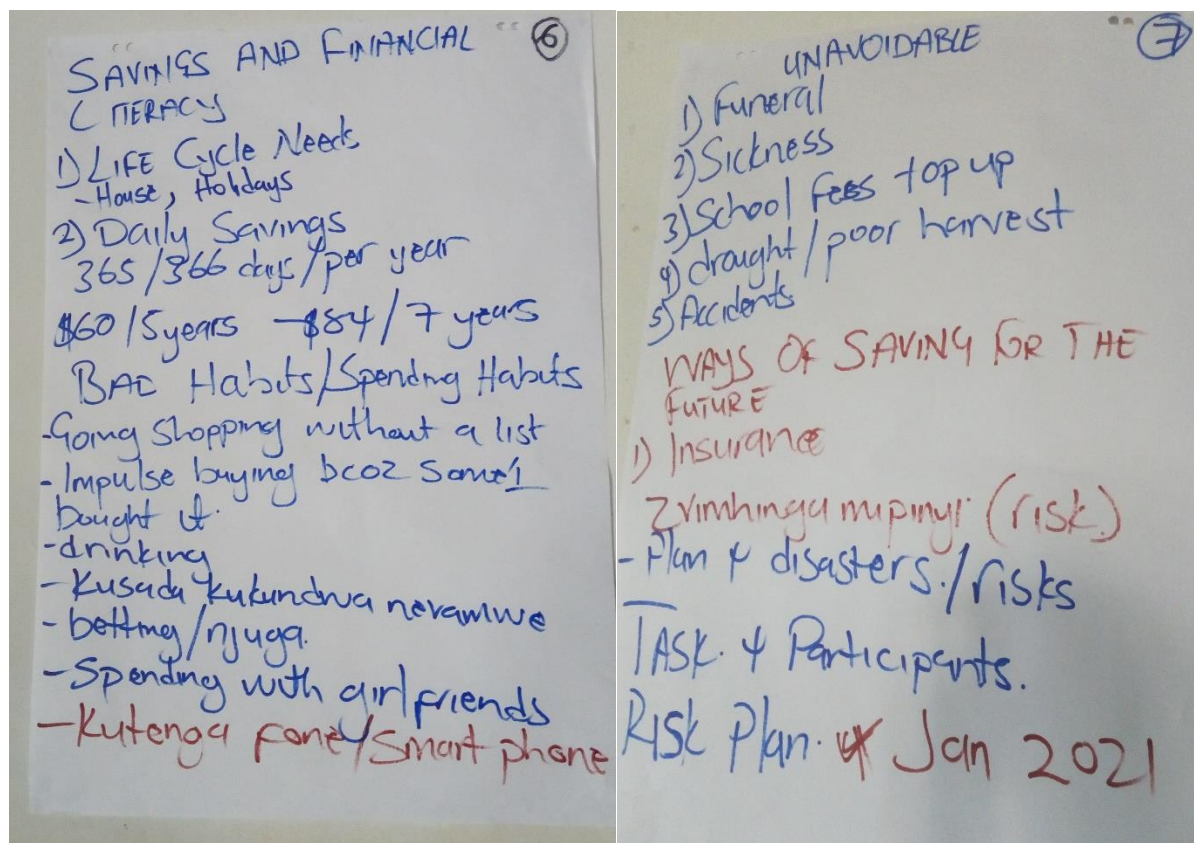 6
SAVINGS AND FINANCIAL
LITERACY
1) LIFE Cycle Needs
- House, Holidays
2) Daily Savings
365/366 days/per year
$60/5years - $84/7 years
BAD Habits/Spending Habits
- Going shopping without a list
- Impulse buying bcoz some1
bought it.
- drinking
- Kusada kukundwa nevamwe
- betting/njuga.
- Spending with girlfriends
- Kutenga fone/smart phone
7
UNAVOIDABLE
1) Funeral
2) Sickness
3) School fees top up
4) drought/poor harvest
5) Accidents
WAYS OF SAVING FOR THE
FUTURE
1) Insurance
Zvimhinga mupinyi (risk)
- Plan 4 disasters./risks
TASK. 4 Participants.
RISK Plan. 4 Jan 2021